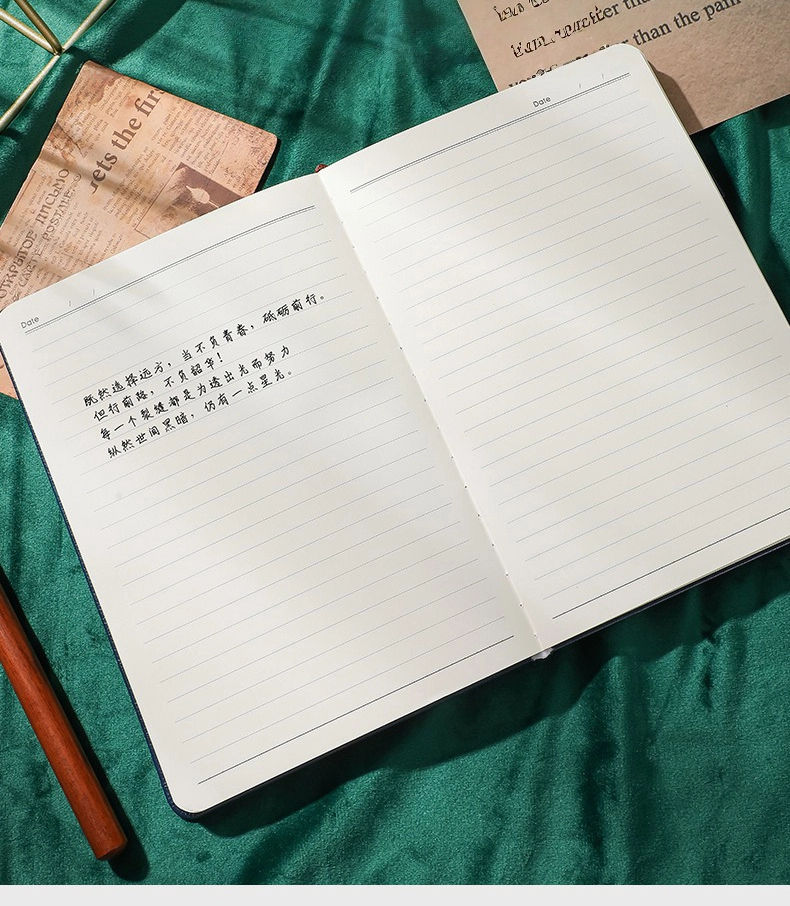 ter than
than the pain
ets the fir
Date / /
Date / /
既然选择远方，当不负青春，砥砺前行。
但行前路，不负韶华！
每一个裂缝都是为透出光而努力
纵然世间黑暗，仍有一点星光。